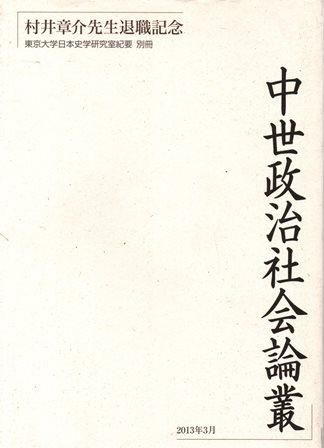 村井章介先生退職記念
東京大学日本史学研究室紀要 別冊
中世政治社会論叢
2013年3月